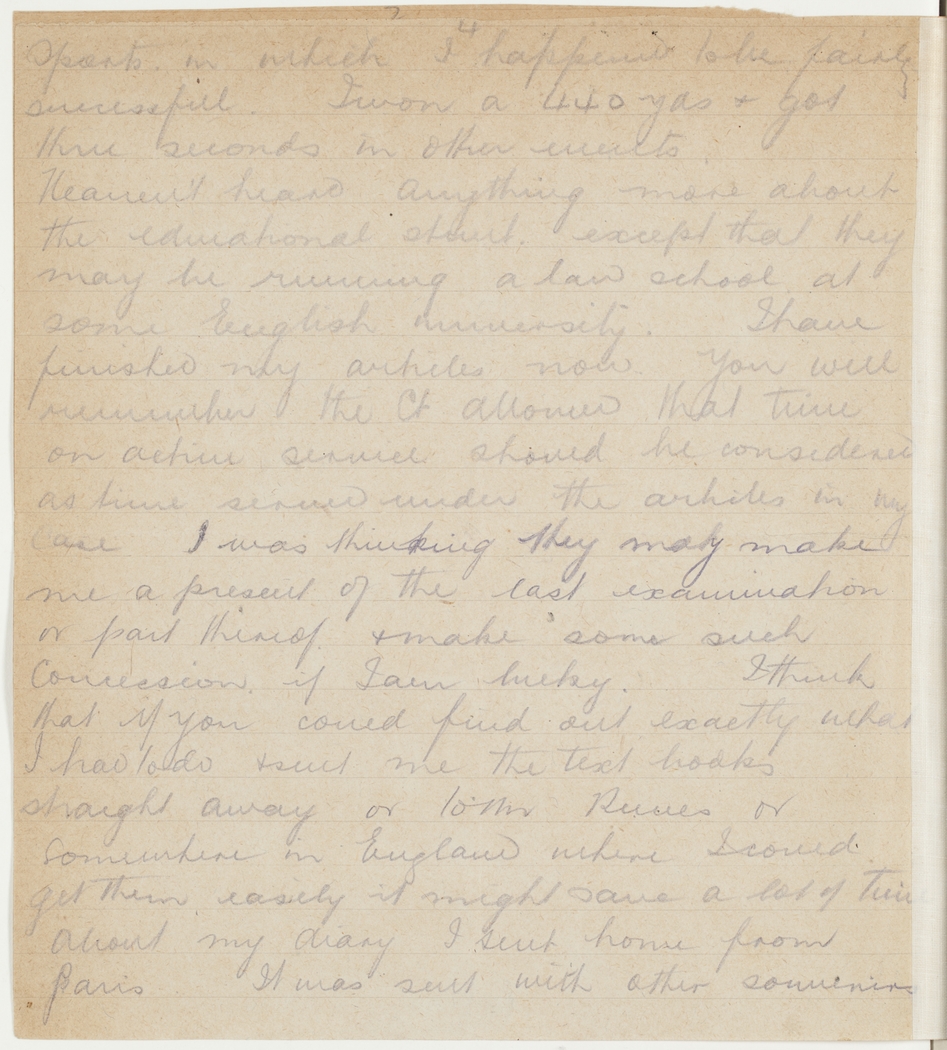 4
sports in which I happened to be fairly
successful. I won a 440 yds & got
three seconds in other events
Heaven't heard anything more about
the educational stunt, except that they
may be running a law school at
some English university. I have
finished my articles now. You will
remember the Ct allowed that time
on active service should be considered
as time served under the articles in my
case I was thinking they may make
me a present of the last examination
or part thereof & make some such
Concession, if I am lucky. I think
that if you could find out exactly what
I had to do & sent me the text books
straight away or to Mr or
somewhere in England where I could
get them easily it might save a lot of time
About my diary I sent home from
Paris It was sent with other souvenirs